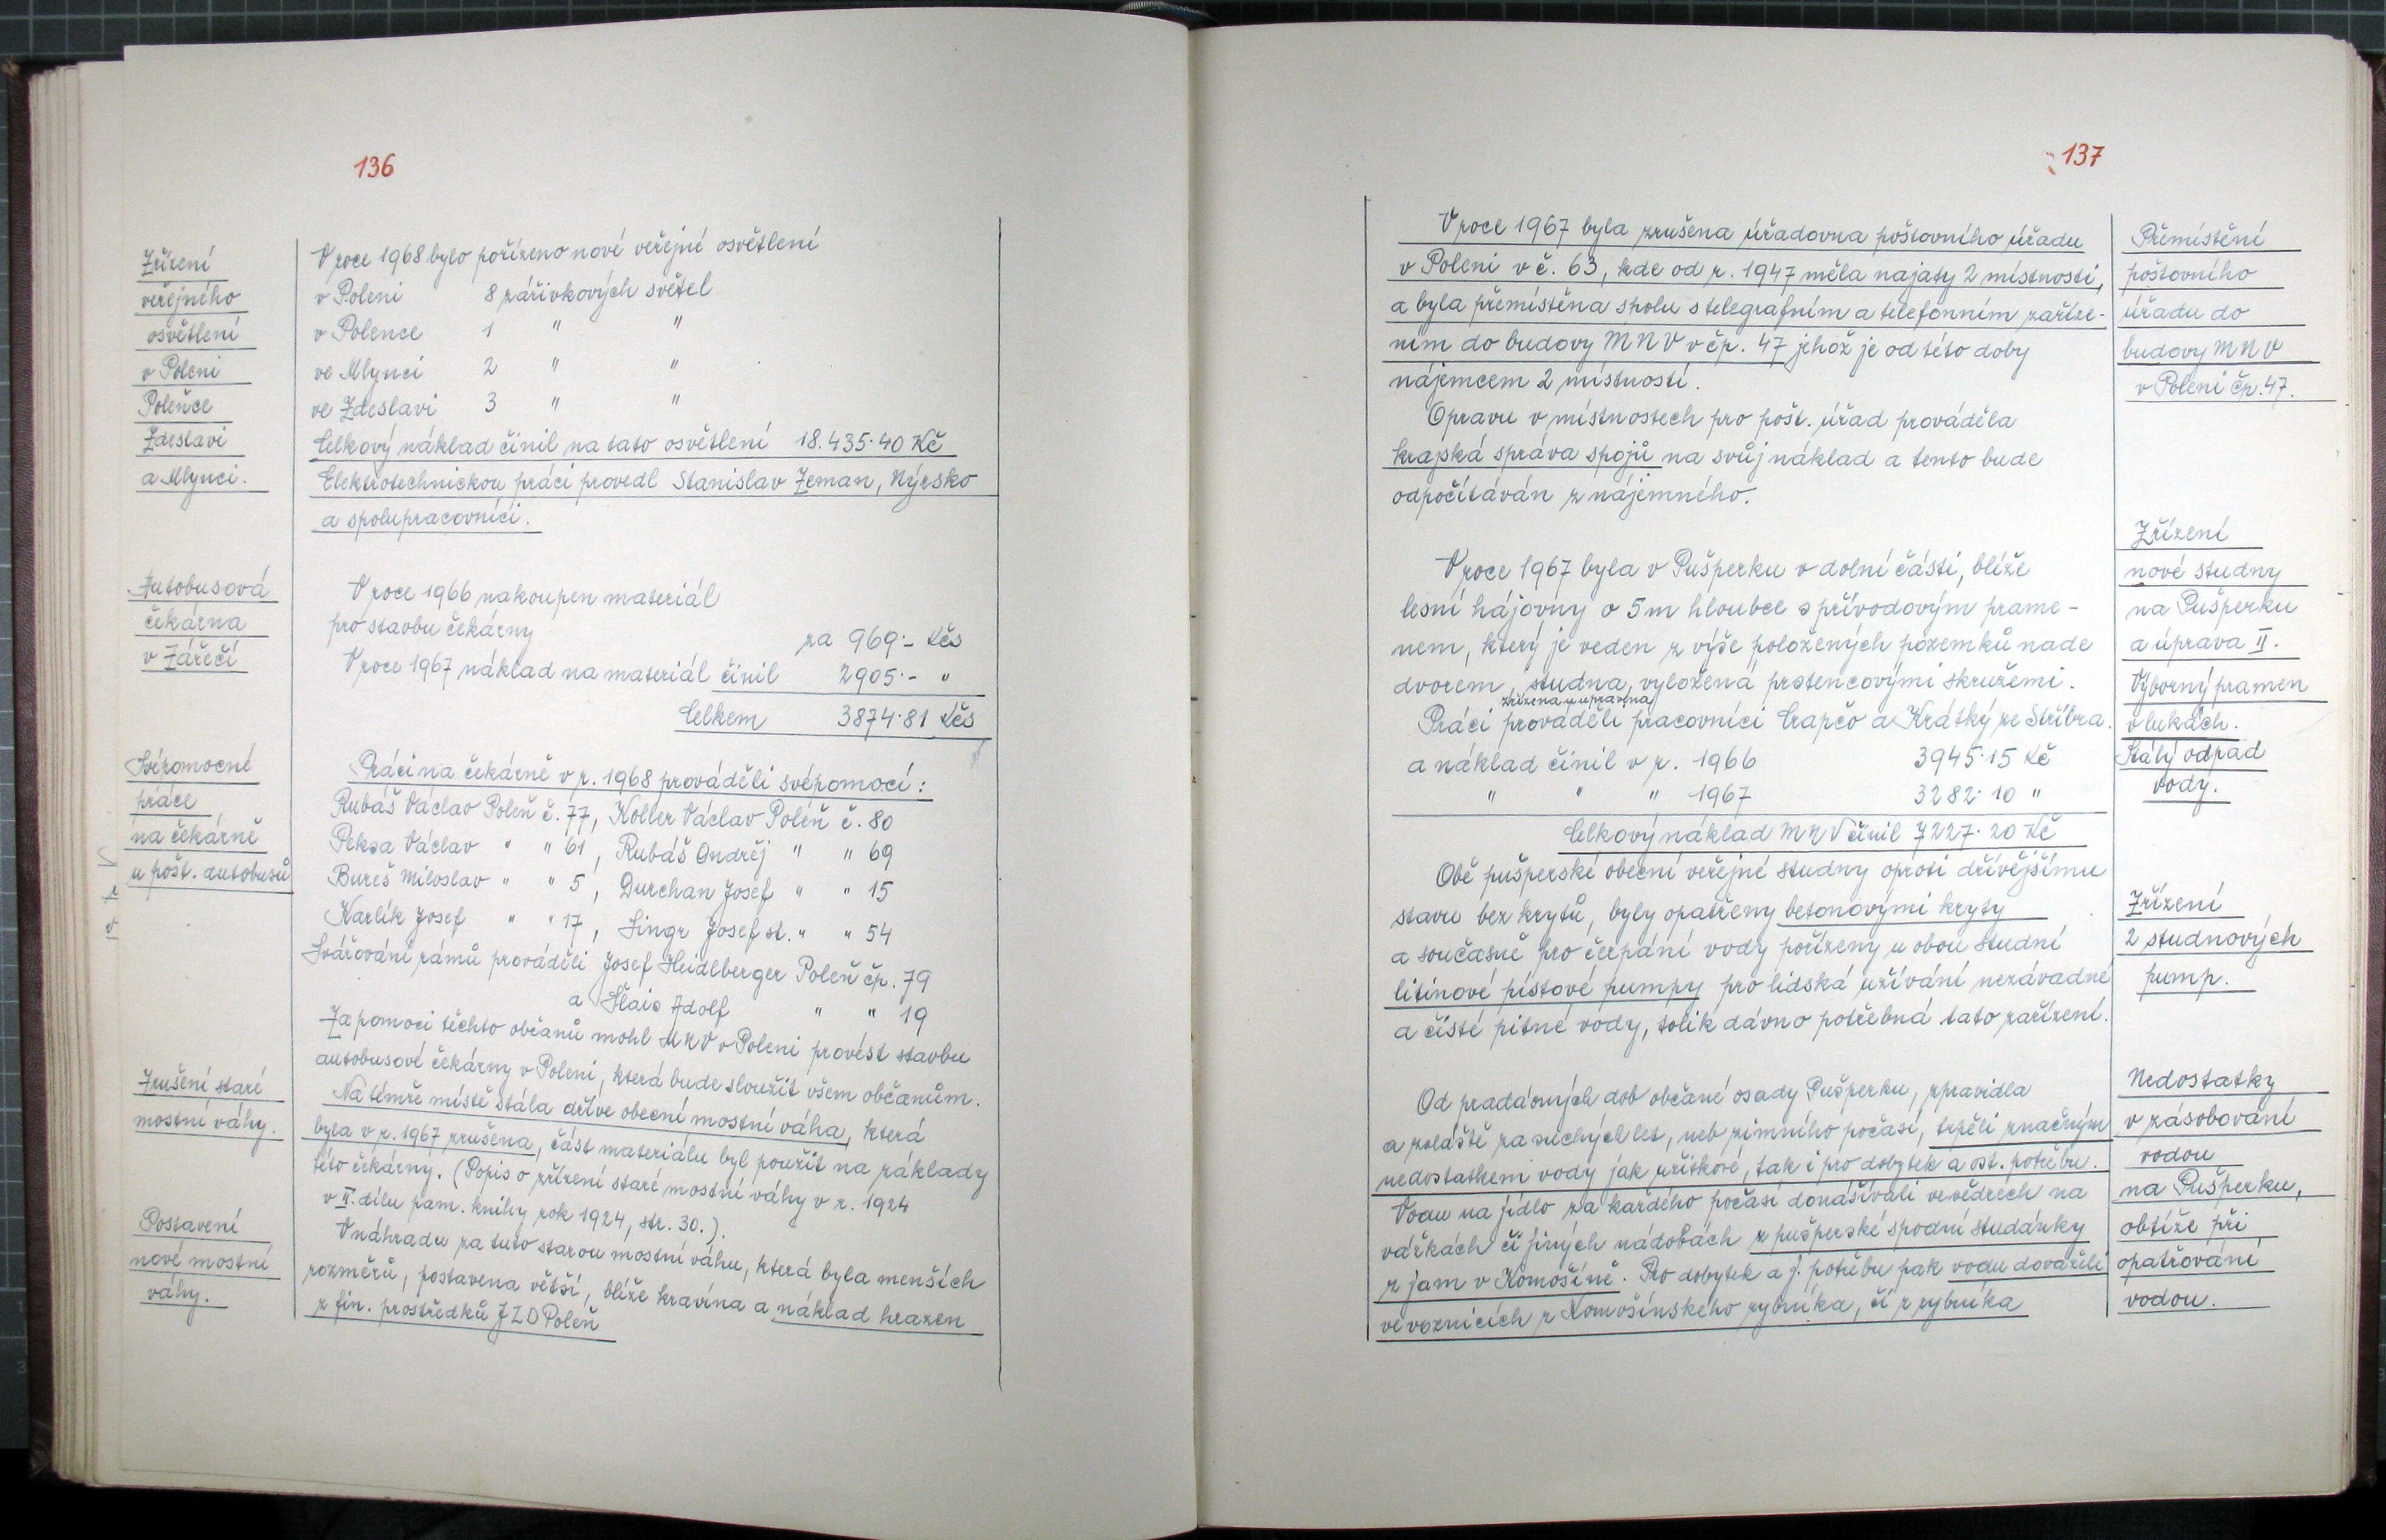 136
Zřízení
veřejného
osvětlení
v Poleni
Poleňce
Zdeslavi
a Mlynci.
V roce 1968 bylo pořízeno nové veřejné osvětlení
v Poleni 8 zářivkových světel
v Polence 1 " "
ve Mlynci 2 " "
ve Zdeslavi 3 " "
Celkový náklad činil na tato osvětlení 18.435·40 Kč
Elektrotechnickou práci provedl Stanislav Zeman, Nýrsko
a spolupracovníci.
Autobusová
čekárna
v Zářečí
V roce 1966 nakoupen materiál
pro stavbu čekárny za 969·- Kčs
V roce 1967 náklad na materiál činil 2905·- "
Celkem 3874·81 Kčs
Svépomocné
práce
na čekárně
u pošt. autobusů
Práci na čekárně v r. 1968 prováděli svépomocí:
Rubáš Václav Poleň č. 77, Koller Václav Poleň č. 80
Peksa Václav " " 61, Rubáš Ondřej " " 69
Bureš Miloslav " " 5, Durchan Josef " " 15
Karlík Josef " " 17, Singr Josef st. " " 54
Svářování rámů prováděli Josef Heidlberger Poleň čp. 79
a Šlais Adolf " " 19
Za pomoci těchto občanů mohl MNV v Poleni provést stavbu
autobusové čekárny v Poleni, která bude sloužit všem občanům.
Zrušení staré
mostní váhy.
Na témže místě stála dříve obecní mostní váha, která
byla v r. 1967 zrušena, část materiálu byl použit na základy
této čekárny. (Popis o zřízení staré mostní váhy v r. 1924
v II. dílu pam. knihy rok 1924, str. 30.).
Postavení
nové mostní
váhy.
V náhradu za tuto starou mostní váhu, která byla menších
rozměrů, postavena větší, blíže kravína a náklad hrazen
z fin. prostředků JZD Poleň
137
V roce 1967 byla zrušena úřadovna poštovního úřadu
v Poleni v č. 63, kde od r. 1947 měla najaty 2 místnosti,
a byla přemístěna spolu s telegrafním a telefonním zaříze-
ním do budovy MNV v čp. 47 jehož je od této doby
nájemcem 2 místností.
Přemístění
poštovního
úřadu do
budovy MNV
v Poleni čp. 47.
Opravu v místnostech pro pošt. úřad prováděla
krajská správa spojů na svůj náklad a tento bude
odpočítáván z nájemného.
Zřízení
nové studny
na Pušperku
a úprava II.
Výborný pramen
v lukách.
Stálý odpad
vody.
V roce 1967 byla v Pušperku v dolní části, blíže
lesní hájovny o 5m hloubce s přívodovým prame-
nem, který je veden z výše položených pozemků nade
dvorem, studna, vyložená prstencovými skružemi.
zřízena a upravena
Práci prováděli pracovníci Crapčo a Krátký ze Stříbra.
a náklad činil v r. 1966 3945·15 Kč
" " " 1967 3282·10 "
Celkový náklad MNV činil 7227·20 Kč
Obě pušperské obecní veřejné studny oproti dřívějšímu
stavu bez krytů, byly opatřeny betonovými kryty
a současně pro čerpání vody pořízeny u obou studní
litinové pístové pumpy pro lidská užívání nezávadné
a čisté pitné vody, tolik dávno potřebná tato zařízení.
Zřízení
2 studnových
pump.
Od pradávných dob občané osady Pušperku, zpravidla
a zvláště za suchých let, neb zimního počasí, trpěli značným
nedostatkem vody jak užitkové, tak i pro dobytek a ost. potřebu.
Vodu na jídlo za každého počasí donášívali ve vědrech na
vážkách či jiných nádobách z pušperské spodní studánky
z jam v Komošíně. Pro dobytek a j. potřebu pak vodu dováželi
ve voznicích z Komošínského rybníka, či z rybníka
Nedostatky
v zásobování
vodou
na Pušperku,
obtíže při
opatřování
vodou.